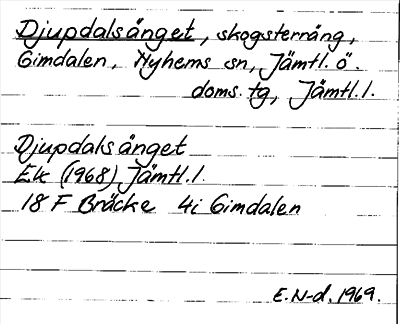 Djupdalsånget, skogsternäng,
Gimdalen, Nyhems sn, Jämtl. ö.
doms. tg, Jämtl. l.
Djupdalsånget
Ek (1968) Jämtl. l.
18 F Bräcke 4i Gimdalen
E. N-d. 1969.